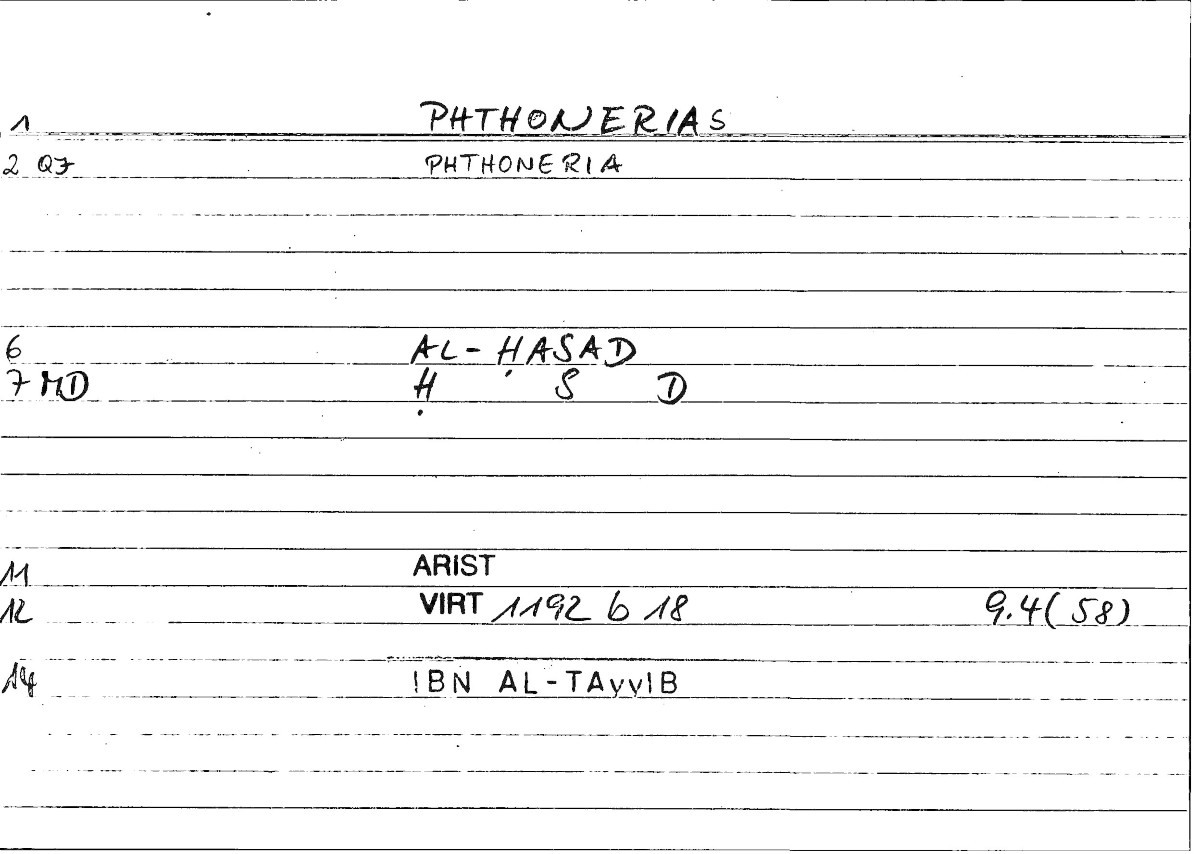 1 PHTHONERIAS
2 QF PHTHONERIA
6 AL-ḤASAD
7 MD Ḥ S D
11 ARIST
12 VIRT 1192 b 18 9.4(58)
14 IBN AL-TAyyIB